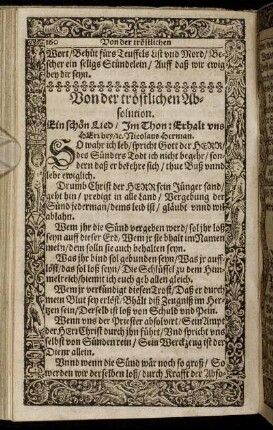 160 Von der tröstlichen
Wort/ Behüt fürs Teuffels list vnd Mord/ Be-
scher ein seligs Stündelein/ Auff daß wir ewig
bey dir seyn.
Von der tröstlichen Ab-
solution.
Ein schön Lied/ Im Thon: Erhalt vns
HErr bey/ ꝛc. Nicolaus Herman.
SO wahr ich leb/ spricht Gott der HERR/
des Sünders Todt ich nicht begehr/ son-
dern daß er bekehre sich/ thue Buß vnnd
lebe ewiglich.
Drumb Christ der HERR sein Jünger sand/
geht hin/ predigt in alle Land/ Vergebung der
Sünd jederman/ dems leid ist/ gläubt vnnd wil
ablahn.
Wem jhr die Sünd vergeben werd/ sol jhr loß
seyn auff dieser Erd/ Wem jr sie bhalt im Namen
mein/ dem solln sie auch behalten seyn.
Was jhr bind sol gebunden seyn/ Was jr auff-
löst/ das sol loß seyn/ Die Schlüssel zu dem Him-
melreich/ hiemit ich euch geb allen gleich.
Wem jr verkündigt diesen Trost/ Daß er durch
mein Blut sey erlöst/ Bhält diß Zeugniß im Her-
tzen sein/ Derselb ist loß von Schuld vnd Pein.
Wenn vns der Priester absolvirt/ Sein Ampt
der HErr Christ durch jhn führt/ Vnd spricht vns
selbst von Sünden rein/ Sein Werckzeug ist der
Diener allein.
Vnnd wenn die Sünd wär noch so groß/ So
werden wir derselben loß/ durch Krafft der Abso-